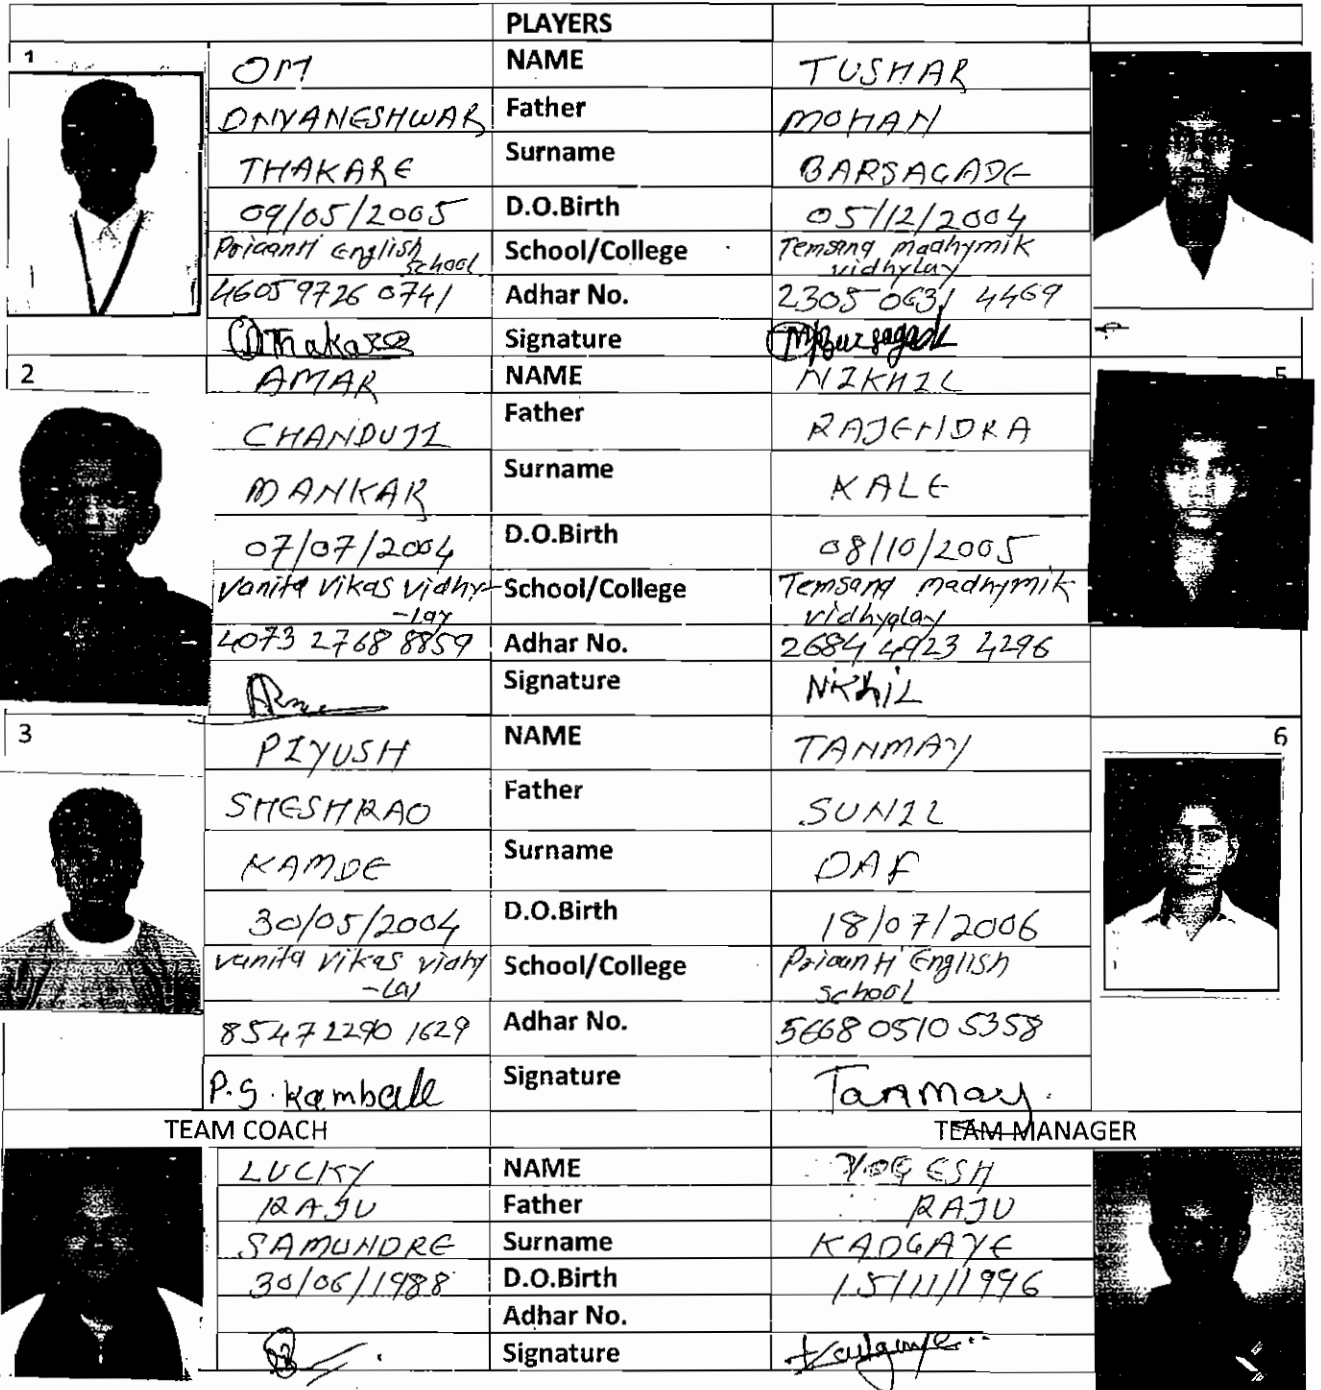 PLAYERS
1 OM NAME TUSHAR
DNYANESHWAR Father MOHAN
THAKARE Surname BARSAGADE
09/05/2005 D.O.Birth 05/12/2004
English School/College Temsana madhymik
school vidhylay
4605 9726 0741 Adhar No. 2305 0631 4469
Thakare Signature
2 AMAR NAME NIKHIL 5
CHANDUJI Father RAJENDRA
MANKAR Surname KALE
07/07/2004 D.O.Birth 08/10/2005
Vanita Vikas Vidhy- School/College Temsana madhymik
-lay vidhyalay
4073 2768 8859 Adhar No. 2684 4923 4296
Signature NKhiL
3 PIYUSH NAME TANMAY 6
SHESHRAO Father SUNIL
KAMDE Surname DAF
30/05/2004 D.O.Birth 18/07/2006
vanita vikas vidhy School/College English
-lay school
8547 1290 1629 Adhar No. 5668 0510 5358
P.S. Kamball Signature Tanmay.
TEAM COACH TEAM MANAGER
LUCKY NAME YOGESH
RAJU Father RAJU
SAMUNDRE Surname KADGAYE
30/06/1988 D.O.Birth 15/11/1996
Adhar No.
Signature